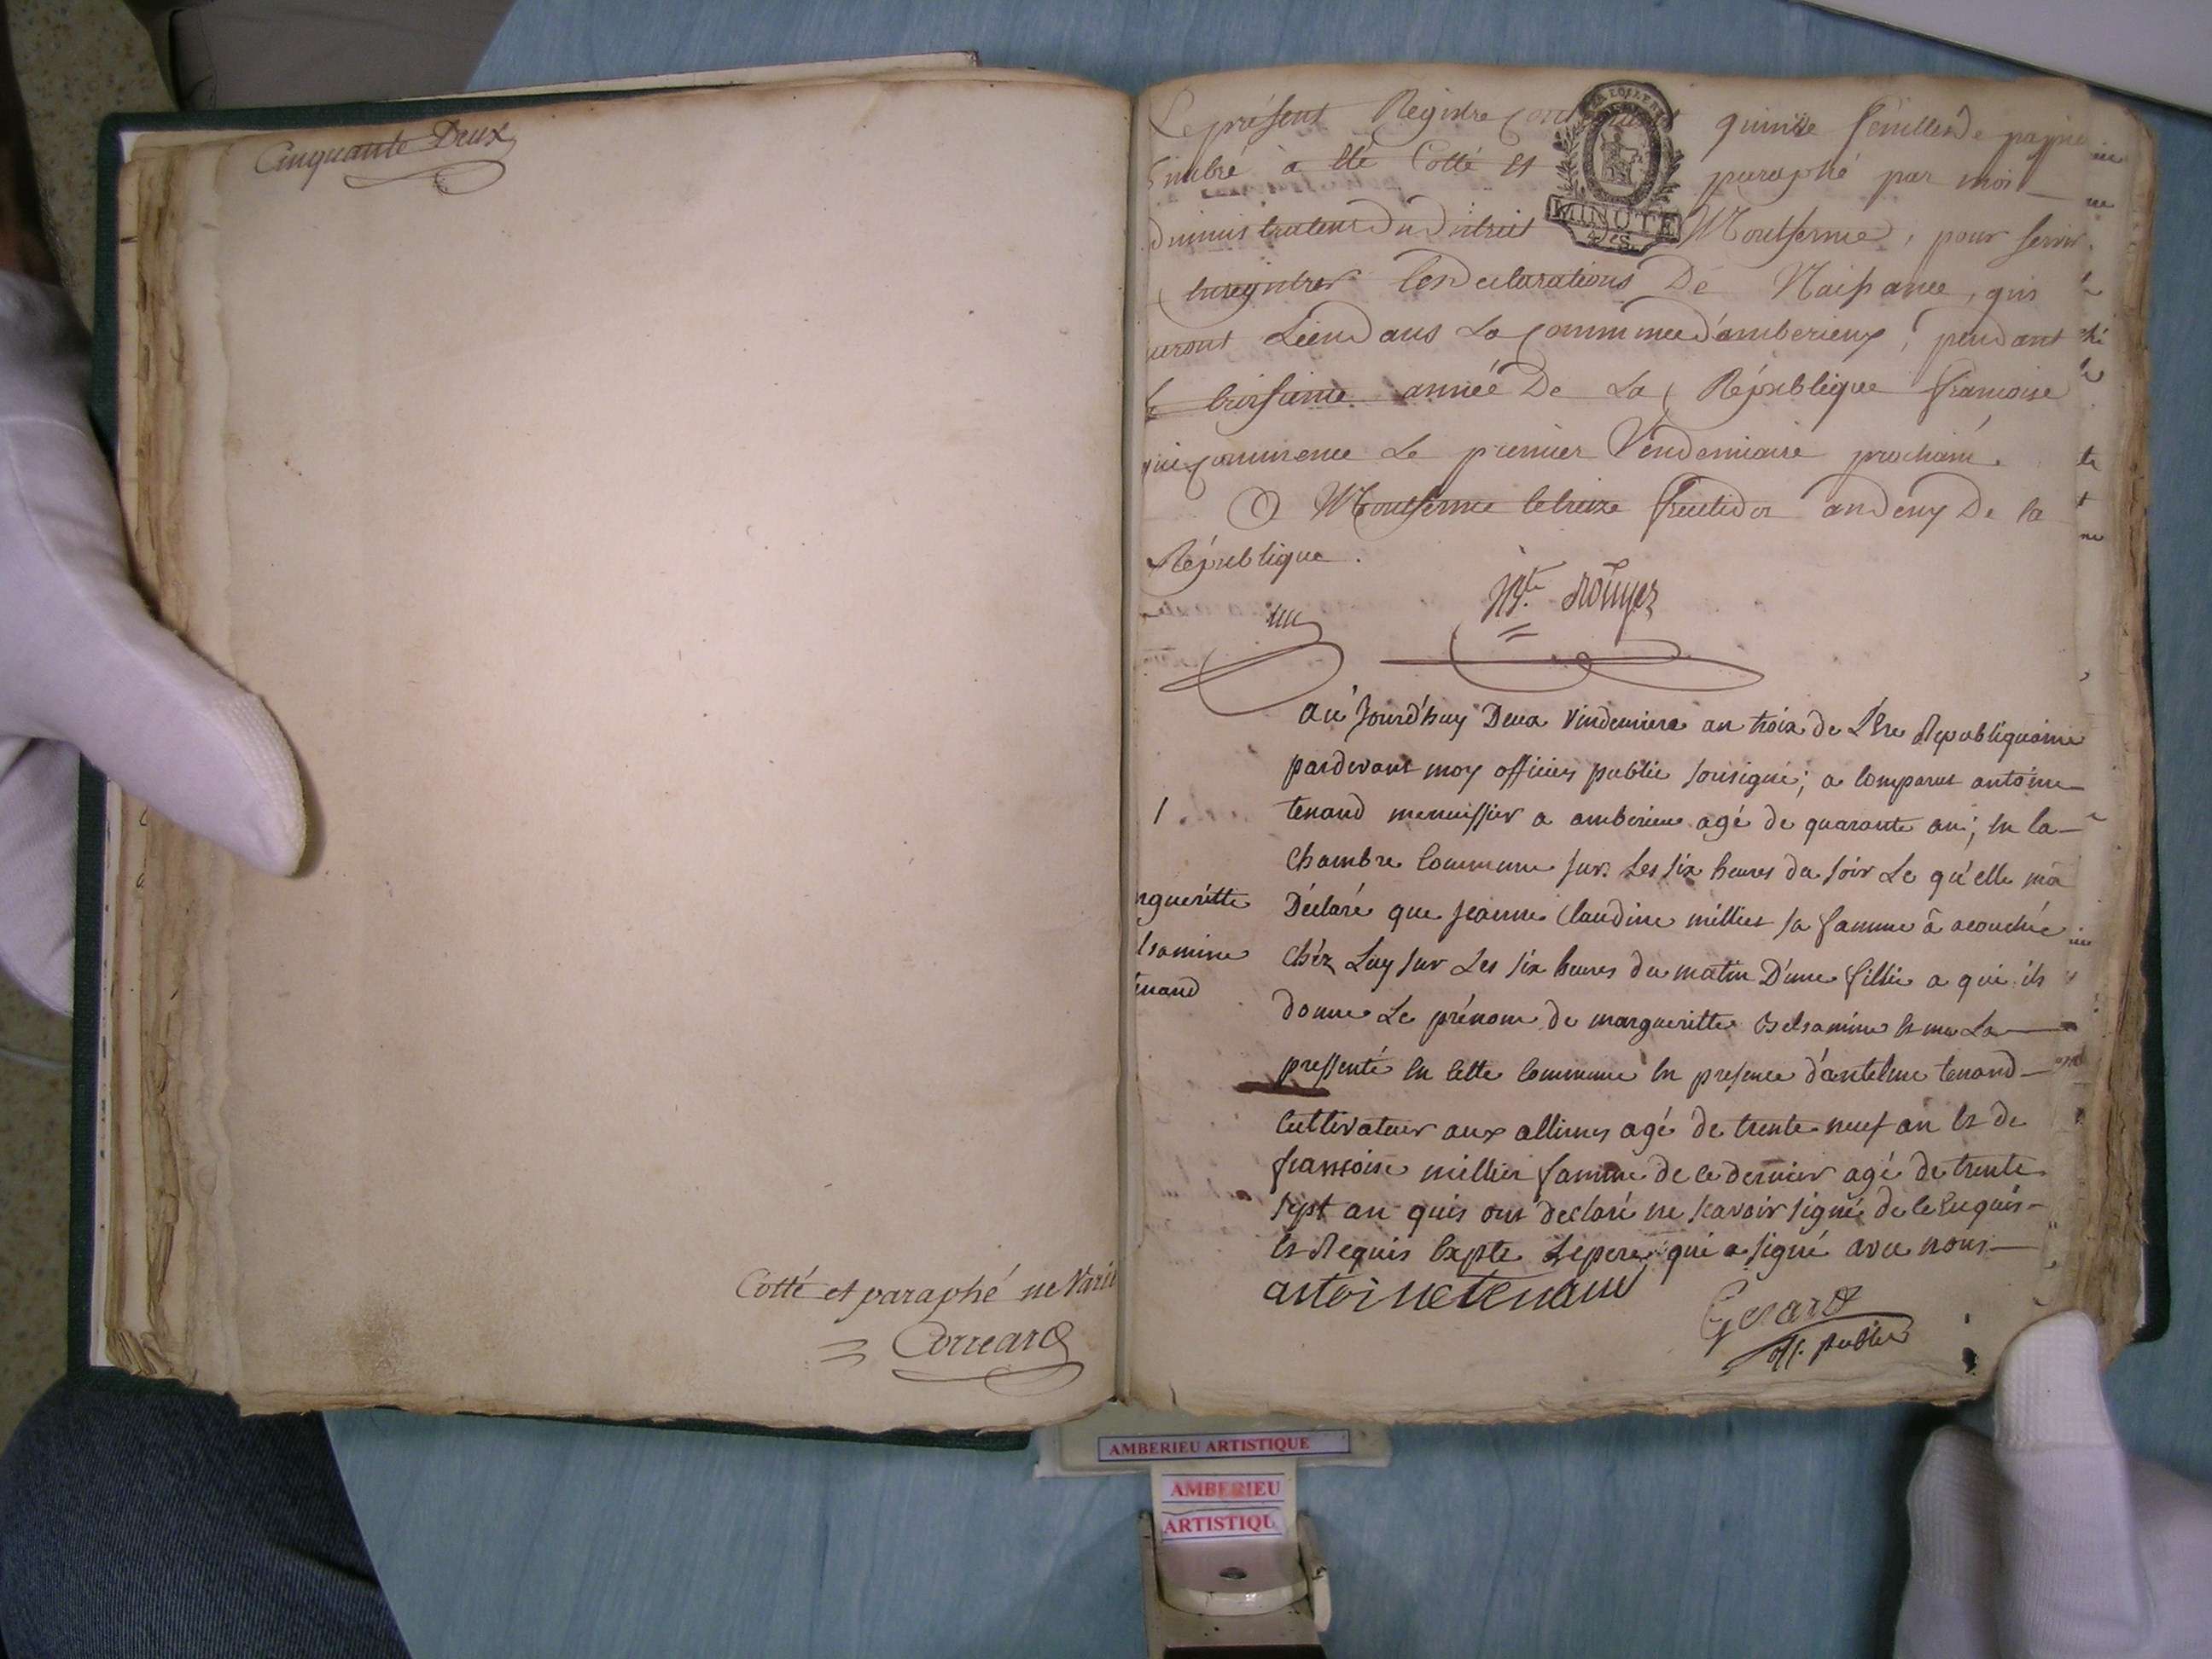 Cinquante Deux
Cotté et paraphé ne Vari
Correard
Le présent Registre quinze feuilles de papie
timbré a été Cotté et paraphé par moi
dministrateur du District Montferme, pour servir
Enregistrer les Declarations De Naissance, qui
auront Lieu dans La Commune d'amberieux, pendant
le troisieme année De La République francoise
qui commence Le premier Vendemiaire prochain.
A Montferme le treize fructidor an deux De la
République.
Rouyer
MINUTE
4 DES.
au Jourd'huy Deux Vindemiere an trois de L'Ere Republiquaine
pardevant moy officier public sousigné; a comparut antoine
1
tenand menuissier a amberieu agé de quarante an; en la
Chambre Commune sur Les six heures du soir Le qu'elle m'a
rgueritte
Déclaré que jeanne Claudine milliet sa famme â acouchée
lsamine
Chéz Luy sur Les six heures du matin D'une fillie a qui ils
enand
donne Le prénom de margueritte Belsamine et me La
pressenté en cette Commune en presence d'antelme tenand
Cultivateur aux allimes agé de trente neuf an et de
franscoise millier famme de ce dernier agé de trente
sept an quis ont declaré ne scavoir signé de ce Enquis
et Requis Expte Le pere qui a signé avec nous
antoine tenand
Gerard
off. public
AMBERIEU ARTISTIQUE
AMBERIEU
ARTISTIQU